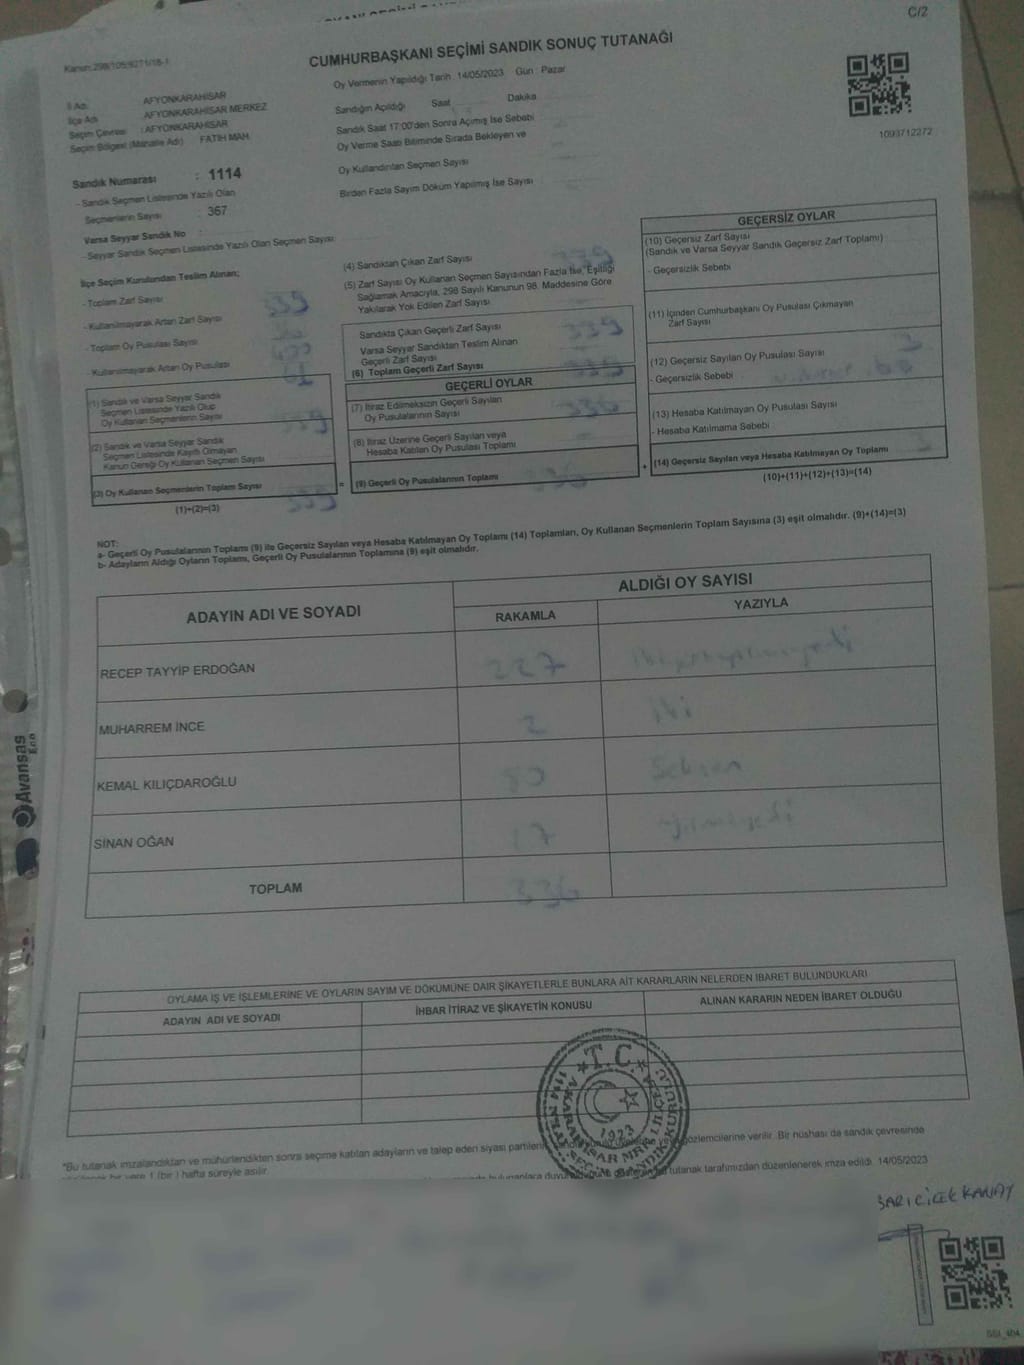 C/2
CUMHURBAŞKANI SEÇİMİ SANDIK SONUÇ TUTANAĞI
Kanun: 298/105/6271/18-1
Oy Vermenin Yapıldığı Tarih 14/05/2023 Gün : Pazar
İl Adı AFYONKARAHİSAR
İlçe Adı AFYONKARAHİSAR MERKEZ
Seçim Çevresi : AFYONKARAHİSAR
Seçim Bölgesi (Mahalle Adı) FATİH MAH.
Sandığın Açıldığı Saat Dakika
Sandık Saat 17:00'den Sonra Açımış İse Sebebi
Oy Verme Saati Bitiminde Sırada Bekleyen ve
Oy Kullandırılan Seçmen Sayısı
Birden Fazla Sayım Döküm Yapılmış İse Sayısı
1093712272
Sandık Numarası : 1114
- Sandık Seçmen Listesinde Yazılı Olan
Seçmenlerin Sayısı : 367
Varsa Seyyar Sandık No :
- Seyyar Sandık Seçmen Listesinde Yazılı Olan Seçmen Sayısı:
İlçe Seçim Kurulundan Teslim Alınan;
- Toplam Zarf Sayısı
- Kullanılmayarak Artan Zarf Sayısı
- Toplam Oy Pusulası Sayısı
- Kullanılmayarak Artan Oy Pusulası
(1) Sandık ve Varsa Seyyar Sandık
Seçmen Listesinde Yazılı Olup
Oy Kullanan Seçmenlerin Sayısı 339
(2) Sandık ve Varsa Seyyar Sandık
Seçmen Listesinde Kayıtlı Olmayan
Kanun Gereği Oy Kullanan Seçmen Sayısı
(3) Oy Kullanan Seçmenlerin Toplam Sayısı 339
(1)+(2)=(3)
(4) Sandıktan Çıkan Zarf Sayısı 339
(5) Zarf Sayısı Oy Kullanan Seçmen Sayısından Fazla İse, Eşitliği
Sağlamak Amacıyla, 298 Sayılı Kanunun 98. Maddesine Göre
Yakılarak Yok Edilen Zarf Sayısı
Sandıkta Çıkan Geçerli Zarf Sayısı 339
Varsa Seyyar Sandıktan Teslim Alınan
Geçerli Zarf Sayısı
(6) Toplam Geçerli Zarf Sayısı 339
GEÇERLİ OYLAR
(7) İtiraz Edilmeksizin Geçerli Sayılan
Oy Pusulalarının Sayısı 336
(8) İtiraz Üzerine Geçerli Sayılan veya
Hesaba Katılan Oy Pusulası Toplamı
= (9) Geçerli Oy Pusulalarının Toplamı 336
GEÇERSİZ OYLAR
(10) Geçersiz Zarf Sayısı
(Sandık ve Varsa Seyyar Sandık Geçersiz Zarf Toplamı)
- Geçersizlik Sebebi
(11) İçinden Cumhurbaşkanı Oy Pusulası Çıkmayan
Zarf Sayısı
(12) Geçersiz Sayılan Oy Pusulası Sayısı 3
- Geçersizlik Sebebi
(13) Hesaba Katılmayan Oy Pusulası Sayısı
- Hesaba Katılmama Sebebi
+ (14) Geçersiz Sayılan veya Hesaba Katılmayan Oy Toplamı
(10)+(11)+(12)+(13)=(14)
NOT:
a- Geçerli Oy Pusulalarının Toplamı (9) ile Geçersiz Sayılan veya Hesaba Katılmayan Oy Toplamı (14) Toplamları, Oy Kullanan Seçmenlerin Toplam Sayısına (3) eşit olmalıdır. (9)+(14)=(3)
b- Adayların Aldığı Oyların Toplamı, Geçerli Oy Pusulalarının Toplamına (9) eşit olmalıdır.
ADAYIN ADI VE SOYADI ALDIĞI OY SAYISI
RAKAMLA YAZIYLA
RECEP TAYYİP ERDOĞAN 227 ikiyüzyirmiyedi
MUHARREM İNCE 2 iki
KEMAL KILIÇDAROĞLU 80 Seksen
SİNAN OĞAN 27 yirmiyedi
TOPLAM 336
OYLAMA İŞ VE İŞLEMLERİNE VE OYLARIN SAYIM VE DÖKÜMÜNE DAİR ŞİKAYETLERLE BUNLARA AİT KARARLARIN NELERDEN İBARET BULUNDUKLARI
ADAYIN ADI VE SOYADI İHBAR İTİRAZ VE ŞİKAYETİN KONUSU ALINAN KARARIN NEDEN İBARET OLDUĞU
T.C.
1923
*Bu tutanak imzalandıktan ve mühürlendikten sonra seçime katılan adayların ve talep eden siyasi partilerin gözlemcilerine verilir. Bir nüshası da sandık çevresinde
bir yere 1 (bir) hafta süreyle asılır. tutanak tarafımızdan düzenlenerek imza edildi. 14/05/2023
SARIÇİÇEK KANAY
Avansas
Eco